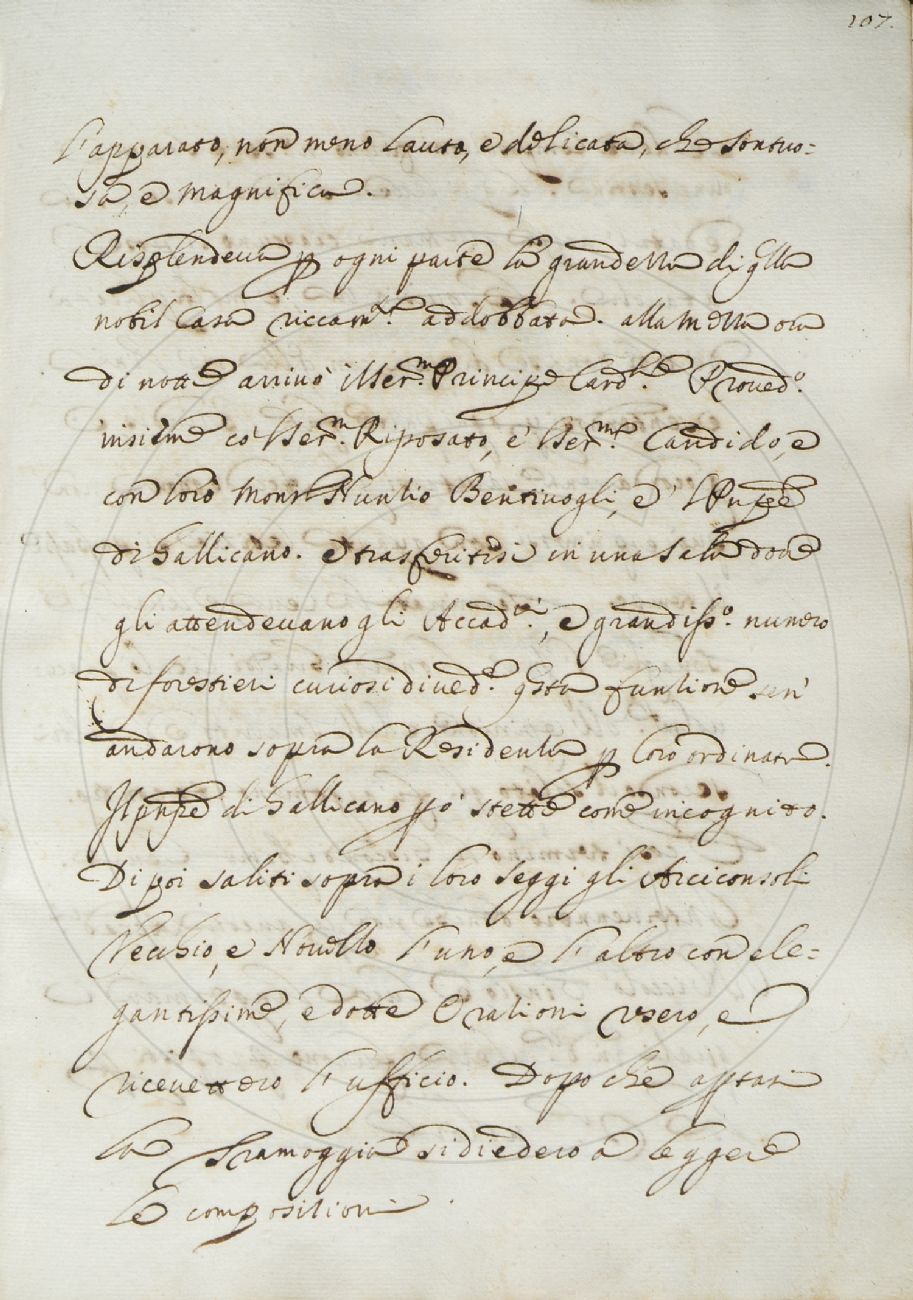 107.
l'apparato, non meno lauta, e delicata, che sontuo=
sa, e magnifica.
Risplendeva p ogni parte la grandezza di qlla
nobil Casa riccam.te addobbata. alla mezza ora
di notte arrivò il Ser.mo Principe Card.le Proved.o
insieme co'l Ser.mo Riposato, e'l Ser.mo Candido, e
con loro Mons.r Nunzio Bentivogli, e'l Pnpe
di Gallicano. e trasferitisi in una Sala dove
gli attendevano gli Accad.ci, e grandiss.o numero
di forestieri curiosi di ved.e qsta funzione sen'
andarono sopra la Residenza p loro ordinata.
Il pnpe di Gallicano pò stette come incognito.
Di poi saliti sopra i loro seggi gli Arciconsoli
Vecchio, e Novello l'uno, e l'altro con ele=
gantissime, e dotte Orazioni resero, e
ricevettero l'ufficio. Dopo che aptasi
la Tramoggia si diedero a leggere
le composizioni.